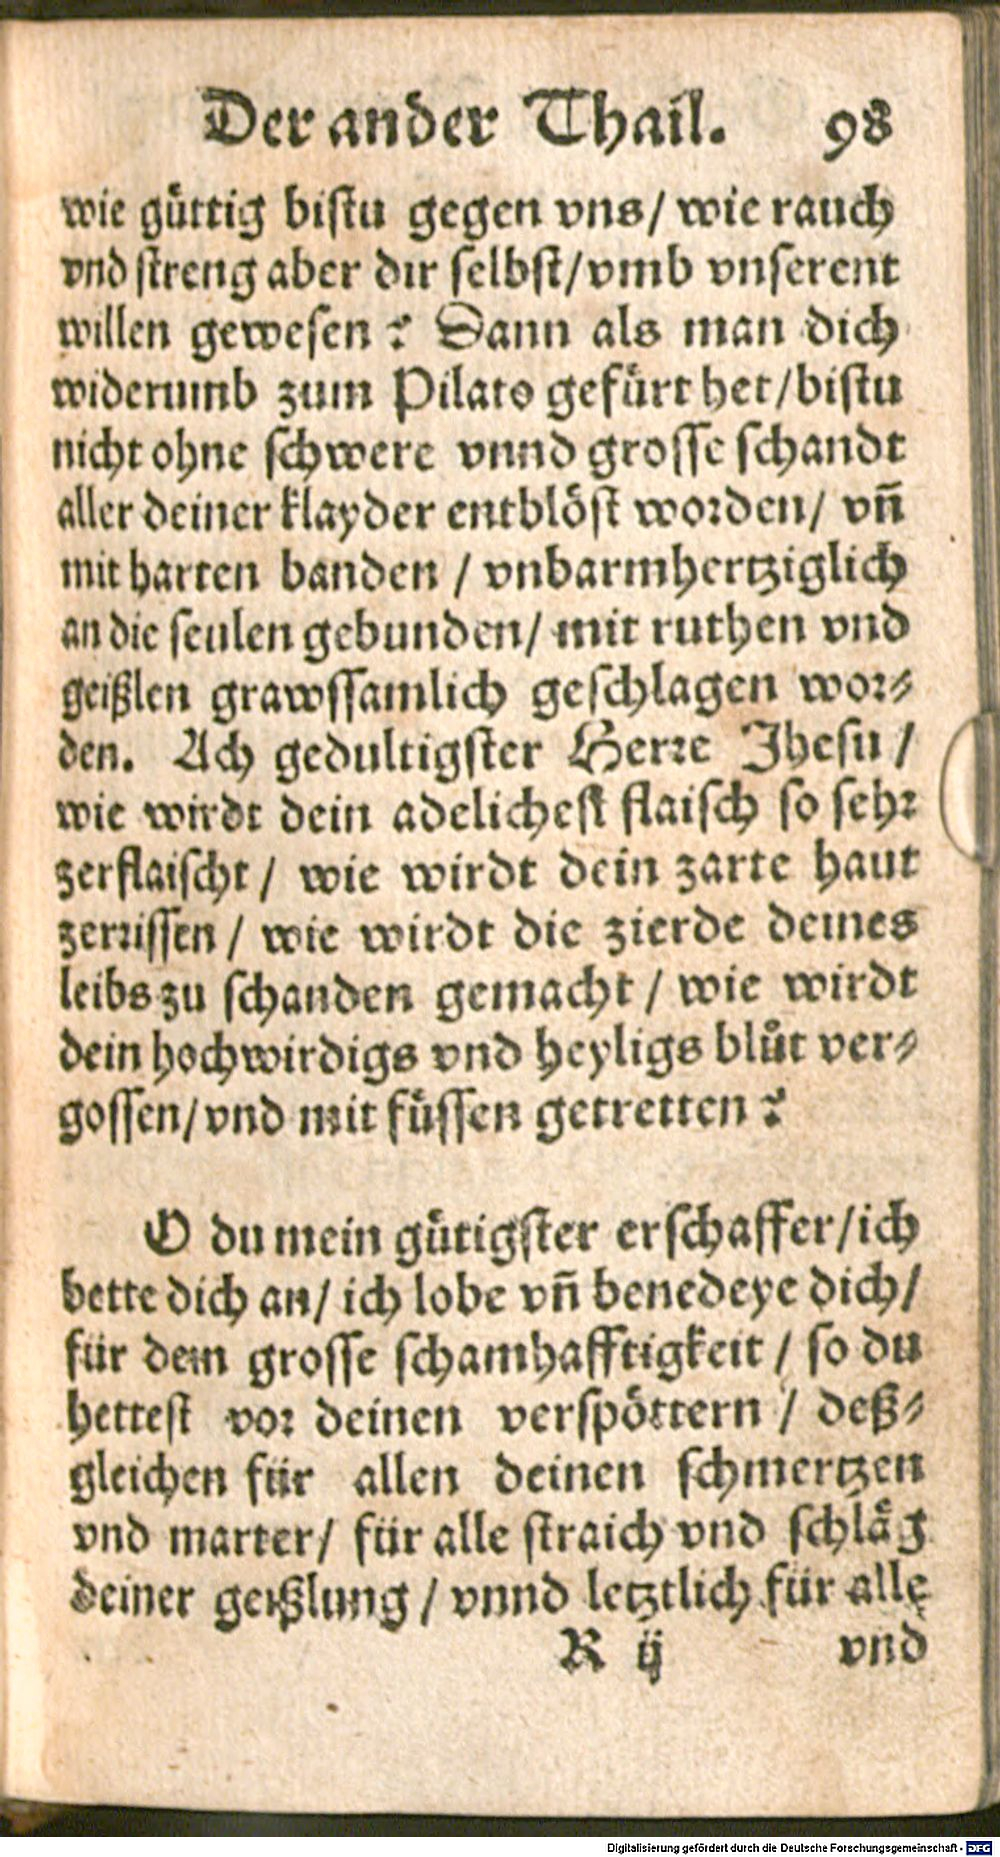 Der ander Thail. 98
wie guͤttig biſtu gegen vns/ wie rauch
vnd ſtreng aber dir ſelbſt/vmb vnſerent
willen geweſen? Dann als man dich
widerumb zum Pilato gefuͤrt het/biſtu
nicht ohne ſchwere vnnd groſſe ſchandt
aller deiner klayder entbloͤſt worden/ vñ
mit harten banden / vnbarmhertziglich
an die ſeulen gebunden/ mit ruthen vnd
geißlen grawſſamlich geſchlagen wor⸗
den. Ach gedultigſter Herre Jheſu /
wie wirdt dein adelicheſt flaiſch ſo ſehr
zerflaiſcht / wie wirdt dein zarte haut
zerriſſen / wie wirdt die zierde deines
leibs zu ſchanden gemacht / wie wirdt
dein hochwirdigs vnd heyligs bluͦt ver⸗
goſſen/vnd mit fuͤſſen getretten?
O du mein guͤtigſter erſchaffer/ich
bette dich an/ ich lobe vñ benedeye dich/
für dem groſſe ſchamhafftigkeit / ſo du
hetteſt vor deinen verſpoͤttern / deß⸗
gleichen für allen deinen ſchmertzen
vnd marter/ für alle ſtraich vnd ſchlaͤg
deiner geißlung / vnnd letztlich für alle
R ij vnd
Digitalisierung gefördert durch die Deutsche Forschungsgemeinschaft - DFG